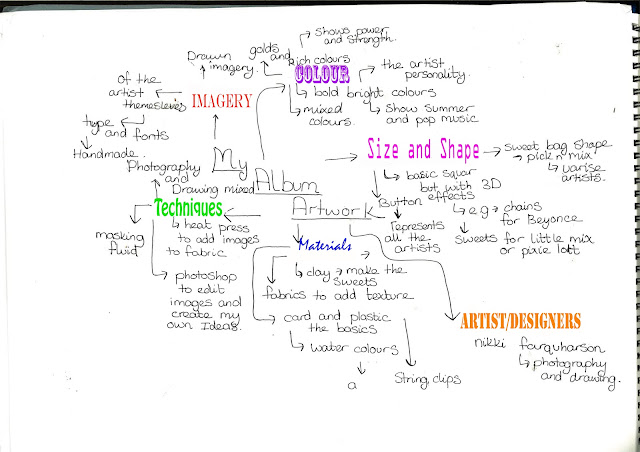 My
Album
Artwork
COLOUR
golds and
rich colours
shows power
and strength.
the artist
personality.
bold bright colours
show summer
and pop music
mixed
colours.
IMAGERY
Drawn
imagery.
of the
artist
themeselves
type
and fonts
Handmade.
Size and Shape
sweet bag shape
pick n' mix'
varise
artists.
basic squar
but with 3D
effects
e.g chains
for Beyonce
sweets for little mix
or pixie lott
Button
represents
all the
artists
Techniques
Photography
and
Drawing mixed
masking
fluid
heat press
to add images
to fabric
photoshop
to edit
images and
create my
own Ideas.
Materials
clay → make the
sweets
fabrics to add texture
card and plastic
the basics
water colours
a
String, clips
ARTIST/DESIGNERS
nikki farquharson
photography
and drawing.